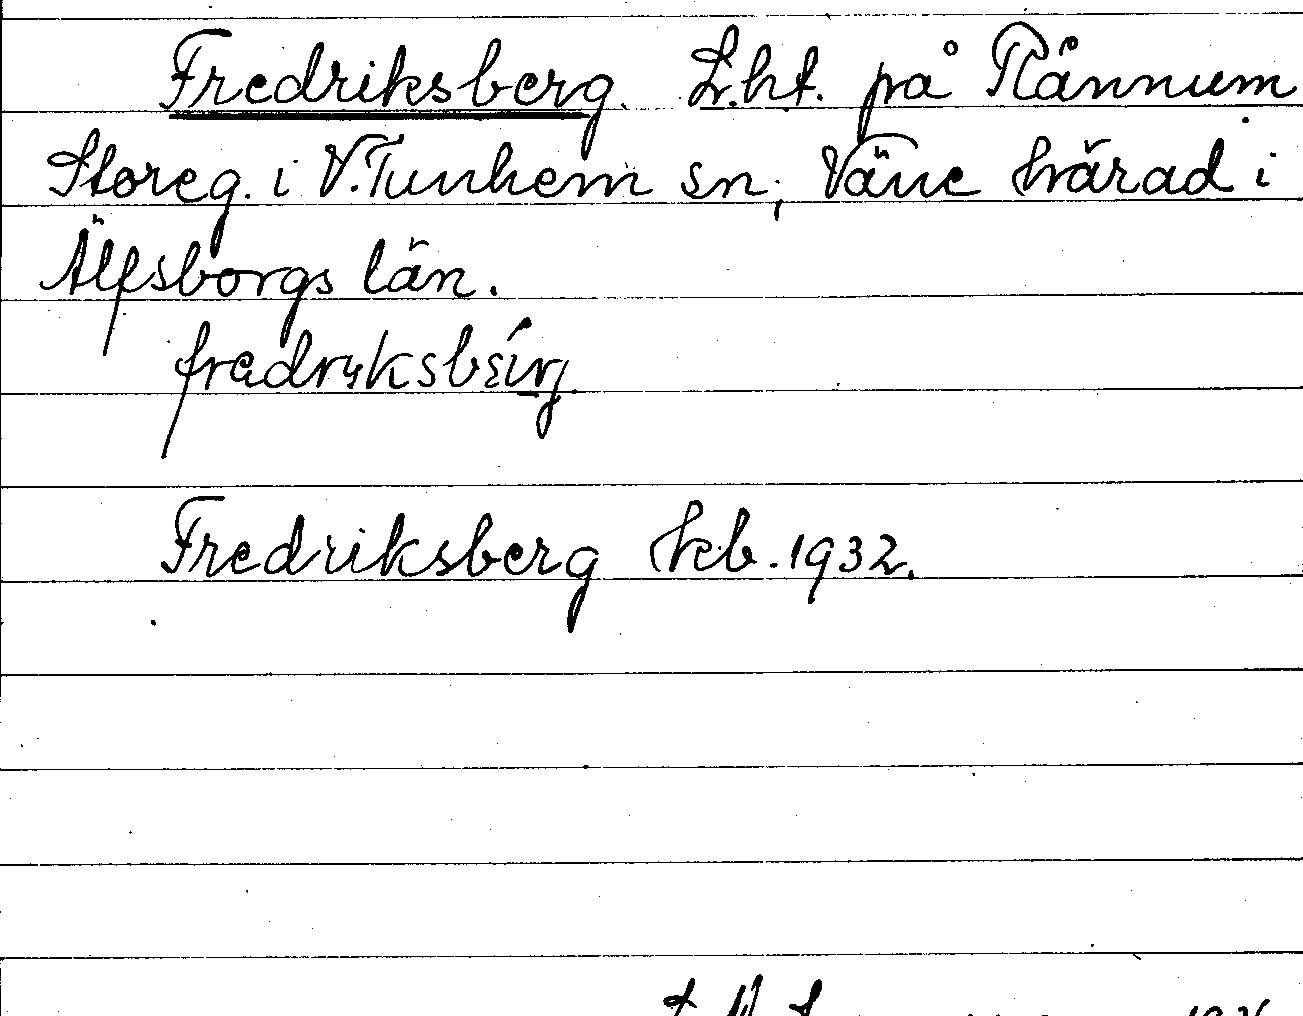 Fredriksberg. L.ht. på Rånnum
Storeg. i V. Tunhem sn, Väne härad i
Älfsborgs län.
Fredriksberg hkb. 1932.